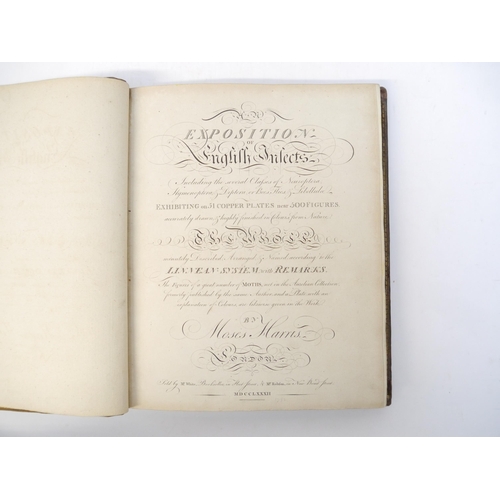 AN
EXPOSITION
OF
English Insects
Including the several Classes of Neuroptera
Hymenoptera & Diptera or Bees Flies & Libellulæ
EXHIBITING on 51 COPPER PLATES near 500 FIGURES
accurately drawn & highly finished in Colours from Nature
THE WHOLE
minutely Described Arranged & Named according to the
LINNEAN SYSTEM with REMARKS
The Figures of a great number of MOTHS, not in the Aurelian Collection
formerly published by the same Author and a Plate with an
explanation of Colours, are likewise given in the Work
BY
Moses Harris
LONDON
Sold by Mr White Bookseller in Fleet Street & Mr Robson in New Bond Street
MDCCLXXXII